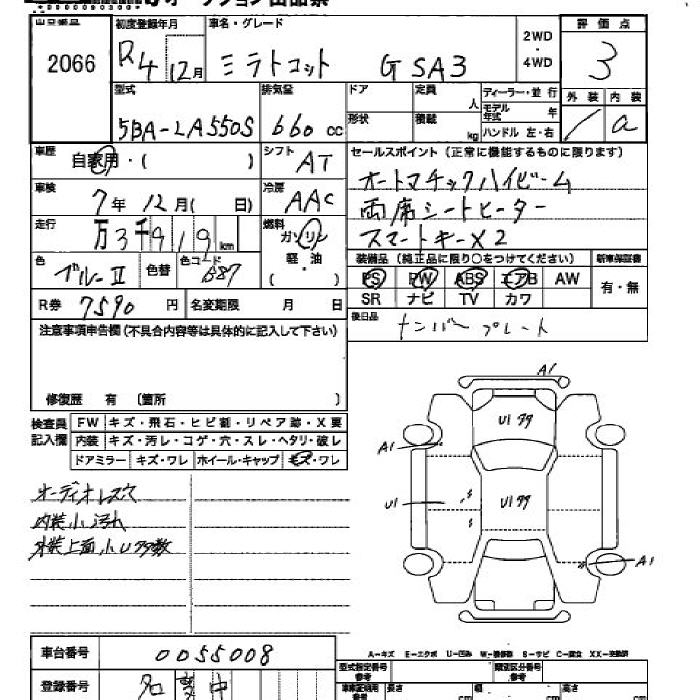 出品番号 2066
初度登録年月 R4 12月
車名・グレード ミラトコット G SA3
2WD・4WD
評価点 3
外装 / 内装 a
型式 5BA-LA550S
排気量 660 cc
ドア 形状
定員 人 積載 kg
ディーラー・並行
モデル年式 年
ハンドル 左・右
車歴 自家用・( )
シフト AT
セールスポイント(正常に機能するものに限ります)
オートマチックハイビーム
両席シートヒーター
スマートキーX2
車検 7年 12月( 日)
冷房 AAC
走行 万3千919km
燃料 ガソリン 軽・油 ( )
色 ブルーII 色替 色コード B87
装備品(純正品に限り○をつけてください) 新車保証書
PS PW ABS エアB AW 有・無
SR ナビ TV カワ
R券 7590 円 名変期限 月 日
後日品 ナンバープレート
注意事項申告欄(不具合内容等は具体的に記入して下さい)
修復歴 有 〔箇所 〕
検査員記入欄
FW キズ・飛石・ヒビ割・リペア跡・X要
内装 キズ・汚レ・コゲ・穴・スレ・ヘタリ・破レ
ドアミラー キズ・ワレ ホイール・キャップ キズ・ワレ
オーディオレス穴
内装小汚れ
外装上面小U多数
A1
U1 多々
A1
U1
U1 多々
A1
A-キズ E-エクボ U-凹み W-補修跡 S-サビ C-腐食 XX-交換済
車台番号 0055008
型式指定番号 参考
類別区分番号 参考
登録番号
車車証明用 参考 長さ cm 幅 cm 高さ cm